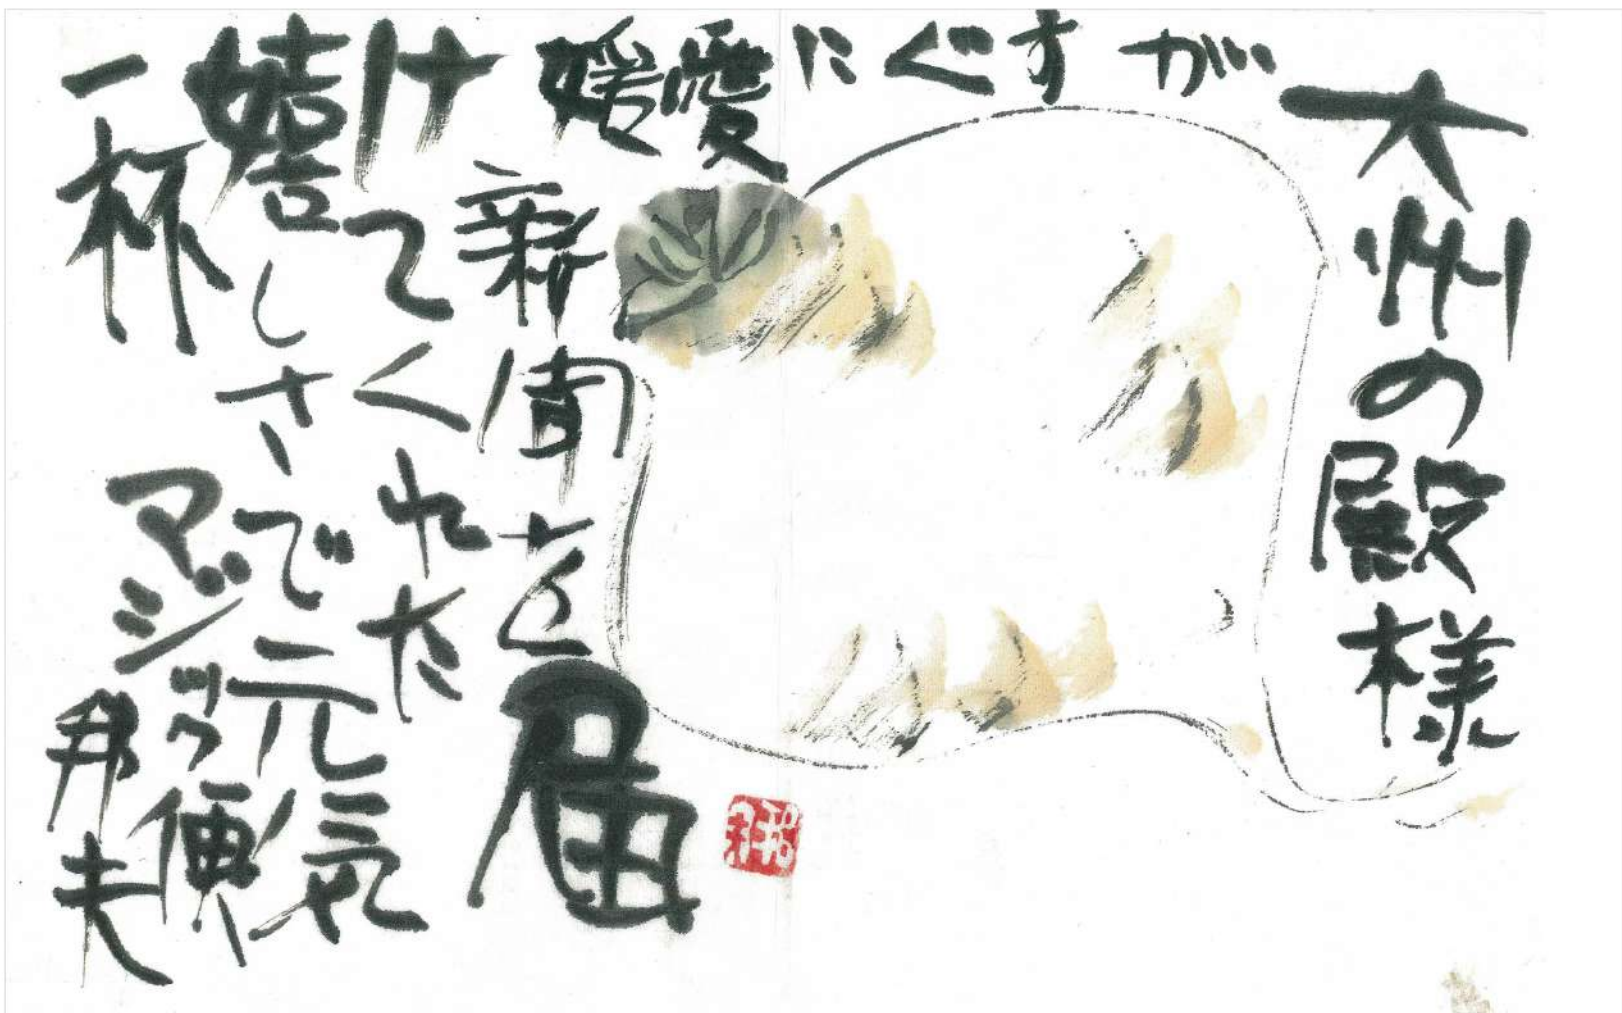 大州の殿様
がすぐに愛媛
新聞を届
けてくれた
嬉しさで元気
一杯
マジック便
邦夫